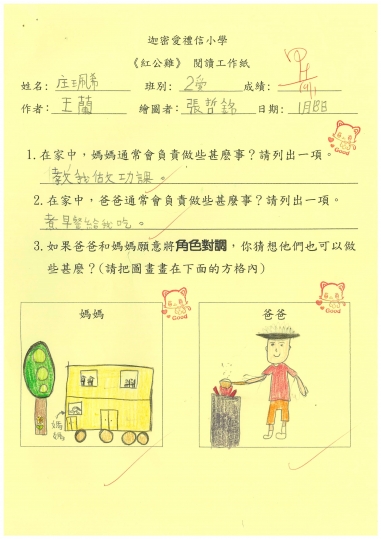 迦密愛禮信小學
《紅公雞》 閱讀工作紙
姓名: 庄珮希 班別: 2愛 成績:
作者: 王蘭 繪圖者: 張哲銘 日期: 1月8日
1. 在家中，媽媽通常會負責做些甚麼事？請列出一項。
教我做功課。
2. 在家中，爸爸通常會負責做些甚麼事？請列出一項。
煮早餐給我吃。
3. 如果爸爸和媽媽願意將角色對調，你猜想他們也可以做
些甚麼？(請把圖畫畫在下面的方格內)
媽媽 爸爸
媽媽
Good
Good
Good